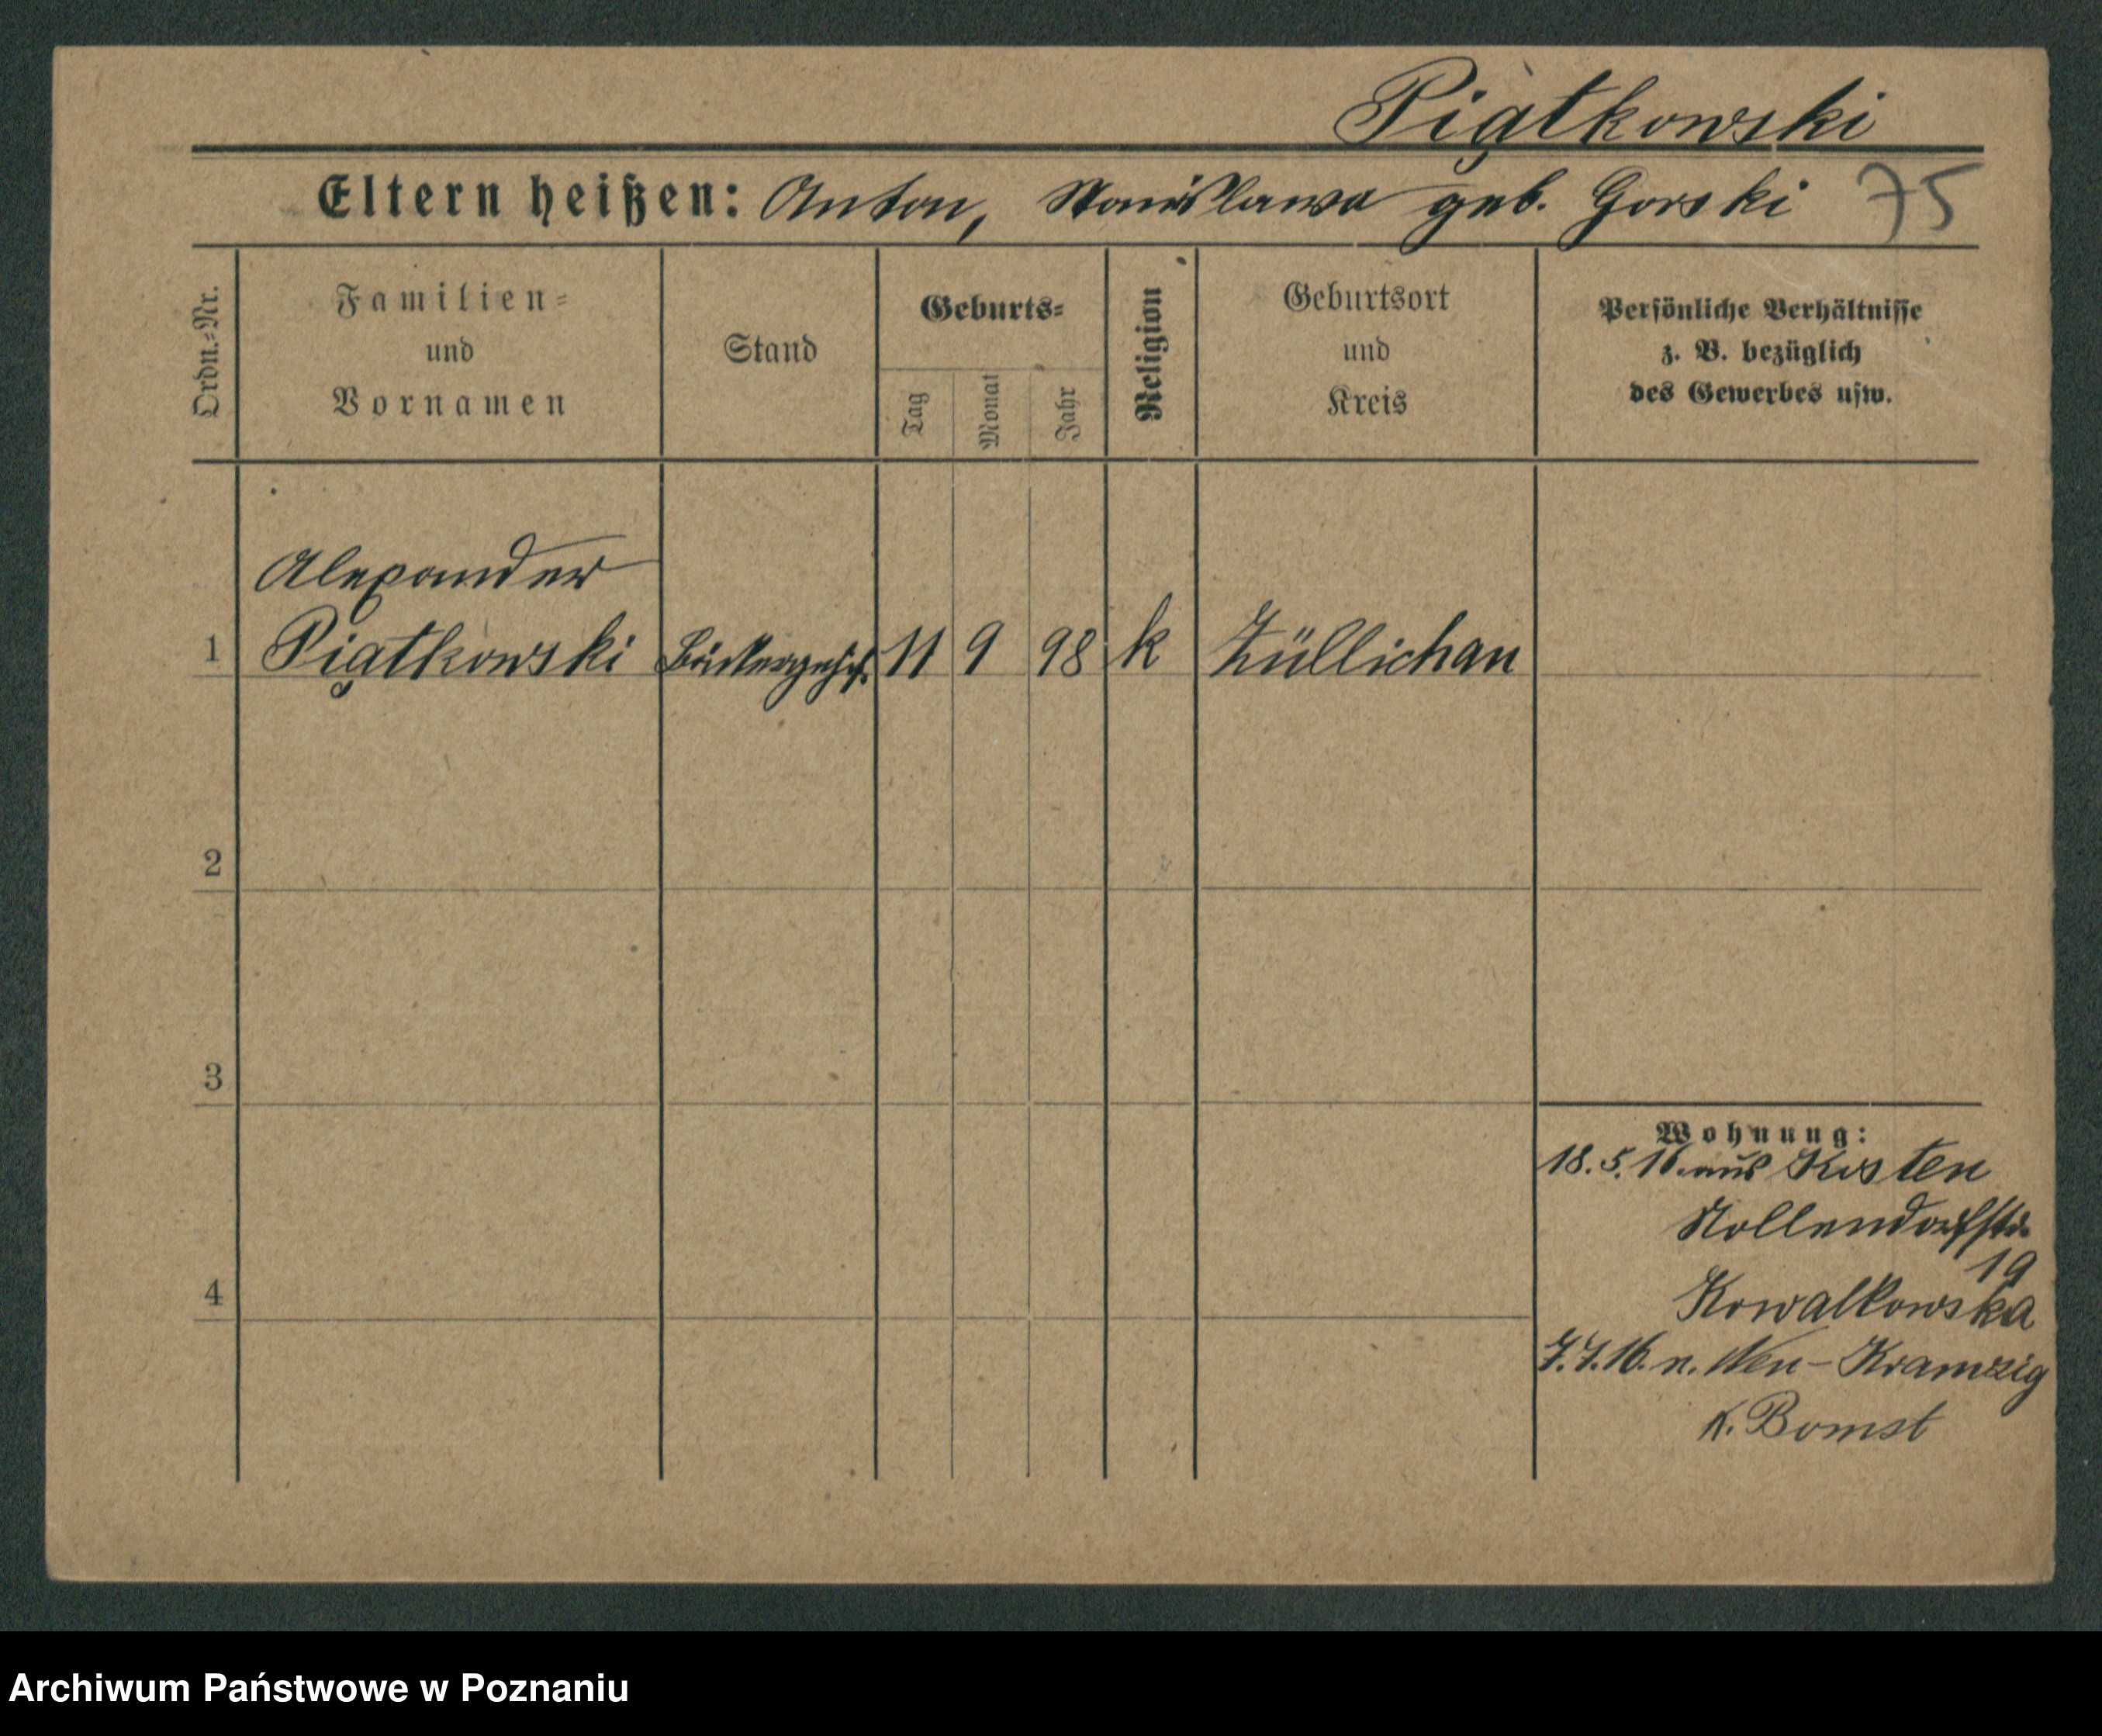 Piątkowski
Eltern heißen: Anton, Stanislawa geb. Gorski 75
Ordn.=Nr.
Familien=
und
Vornamen
Stand
Geburts=
Tag
Monat
Jahr
Religion
Geburtsort
und
Kreis
Persönliche Verhältnisse
z. B. bezüglich
des Gewerbes usw.
Alexander
1 Piątkowski Bäckergeh. 11 9 98 k Züllichau
2
3
Wohnung:
18.5.16. aus Kosten
Nollendorfstr.
19
4
Kowalkowska
7.7.16. n. Neu-Kramzig
K. Bomst
Archiwum Państwowe w Poznaniu